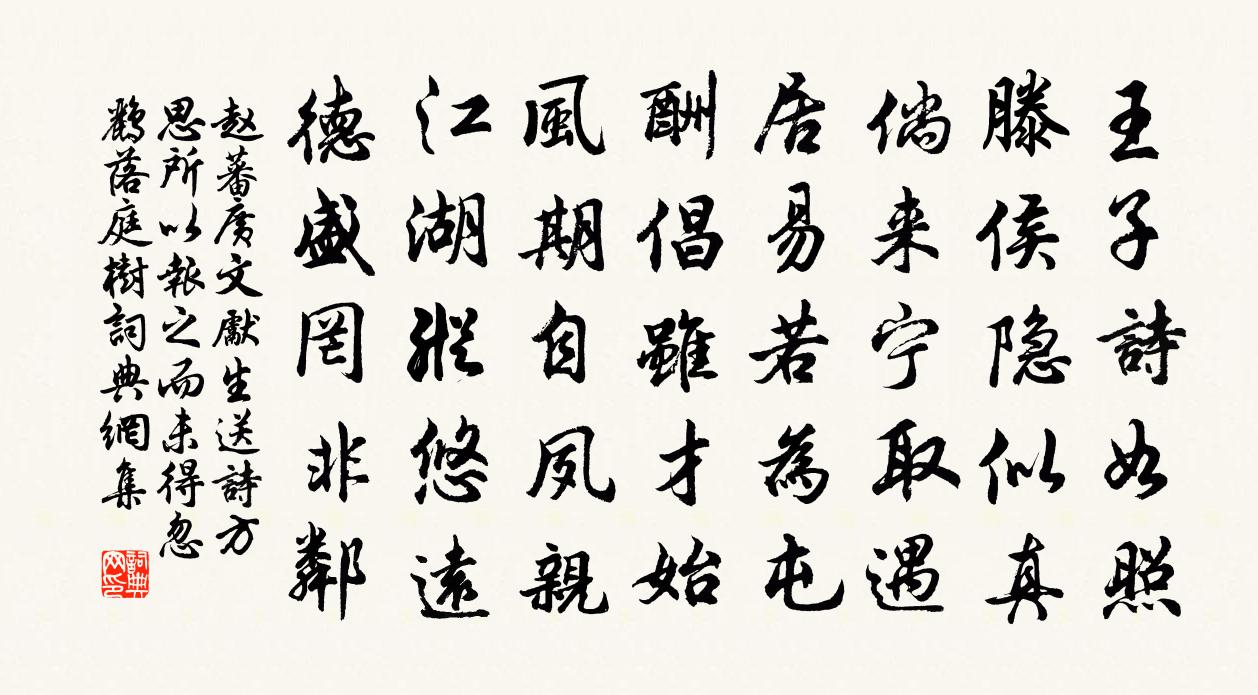 王子詩如照
滕侯隐似真
倘来宁取遇
居易若為屯
酬倡雖才始
風期自夙親
江湖縱悠遠
德盛罔非鄰
赵蕃廣文獻生送詩方
思所以報之而未得忽
鶴落庭樹詞典網集
詞典网印